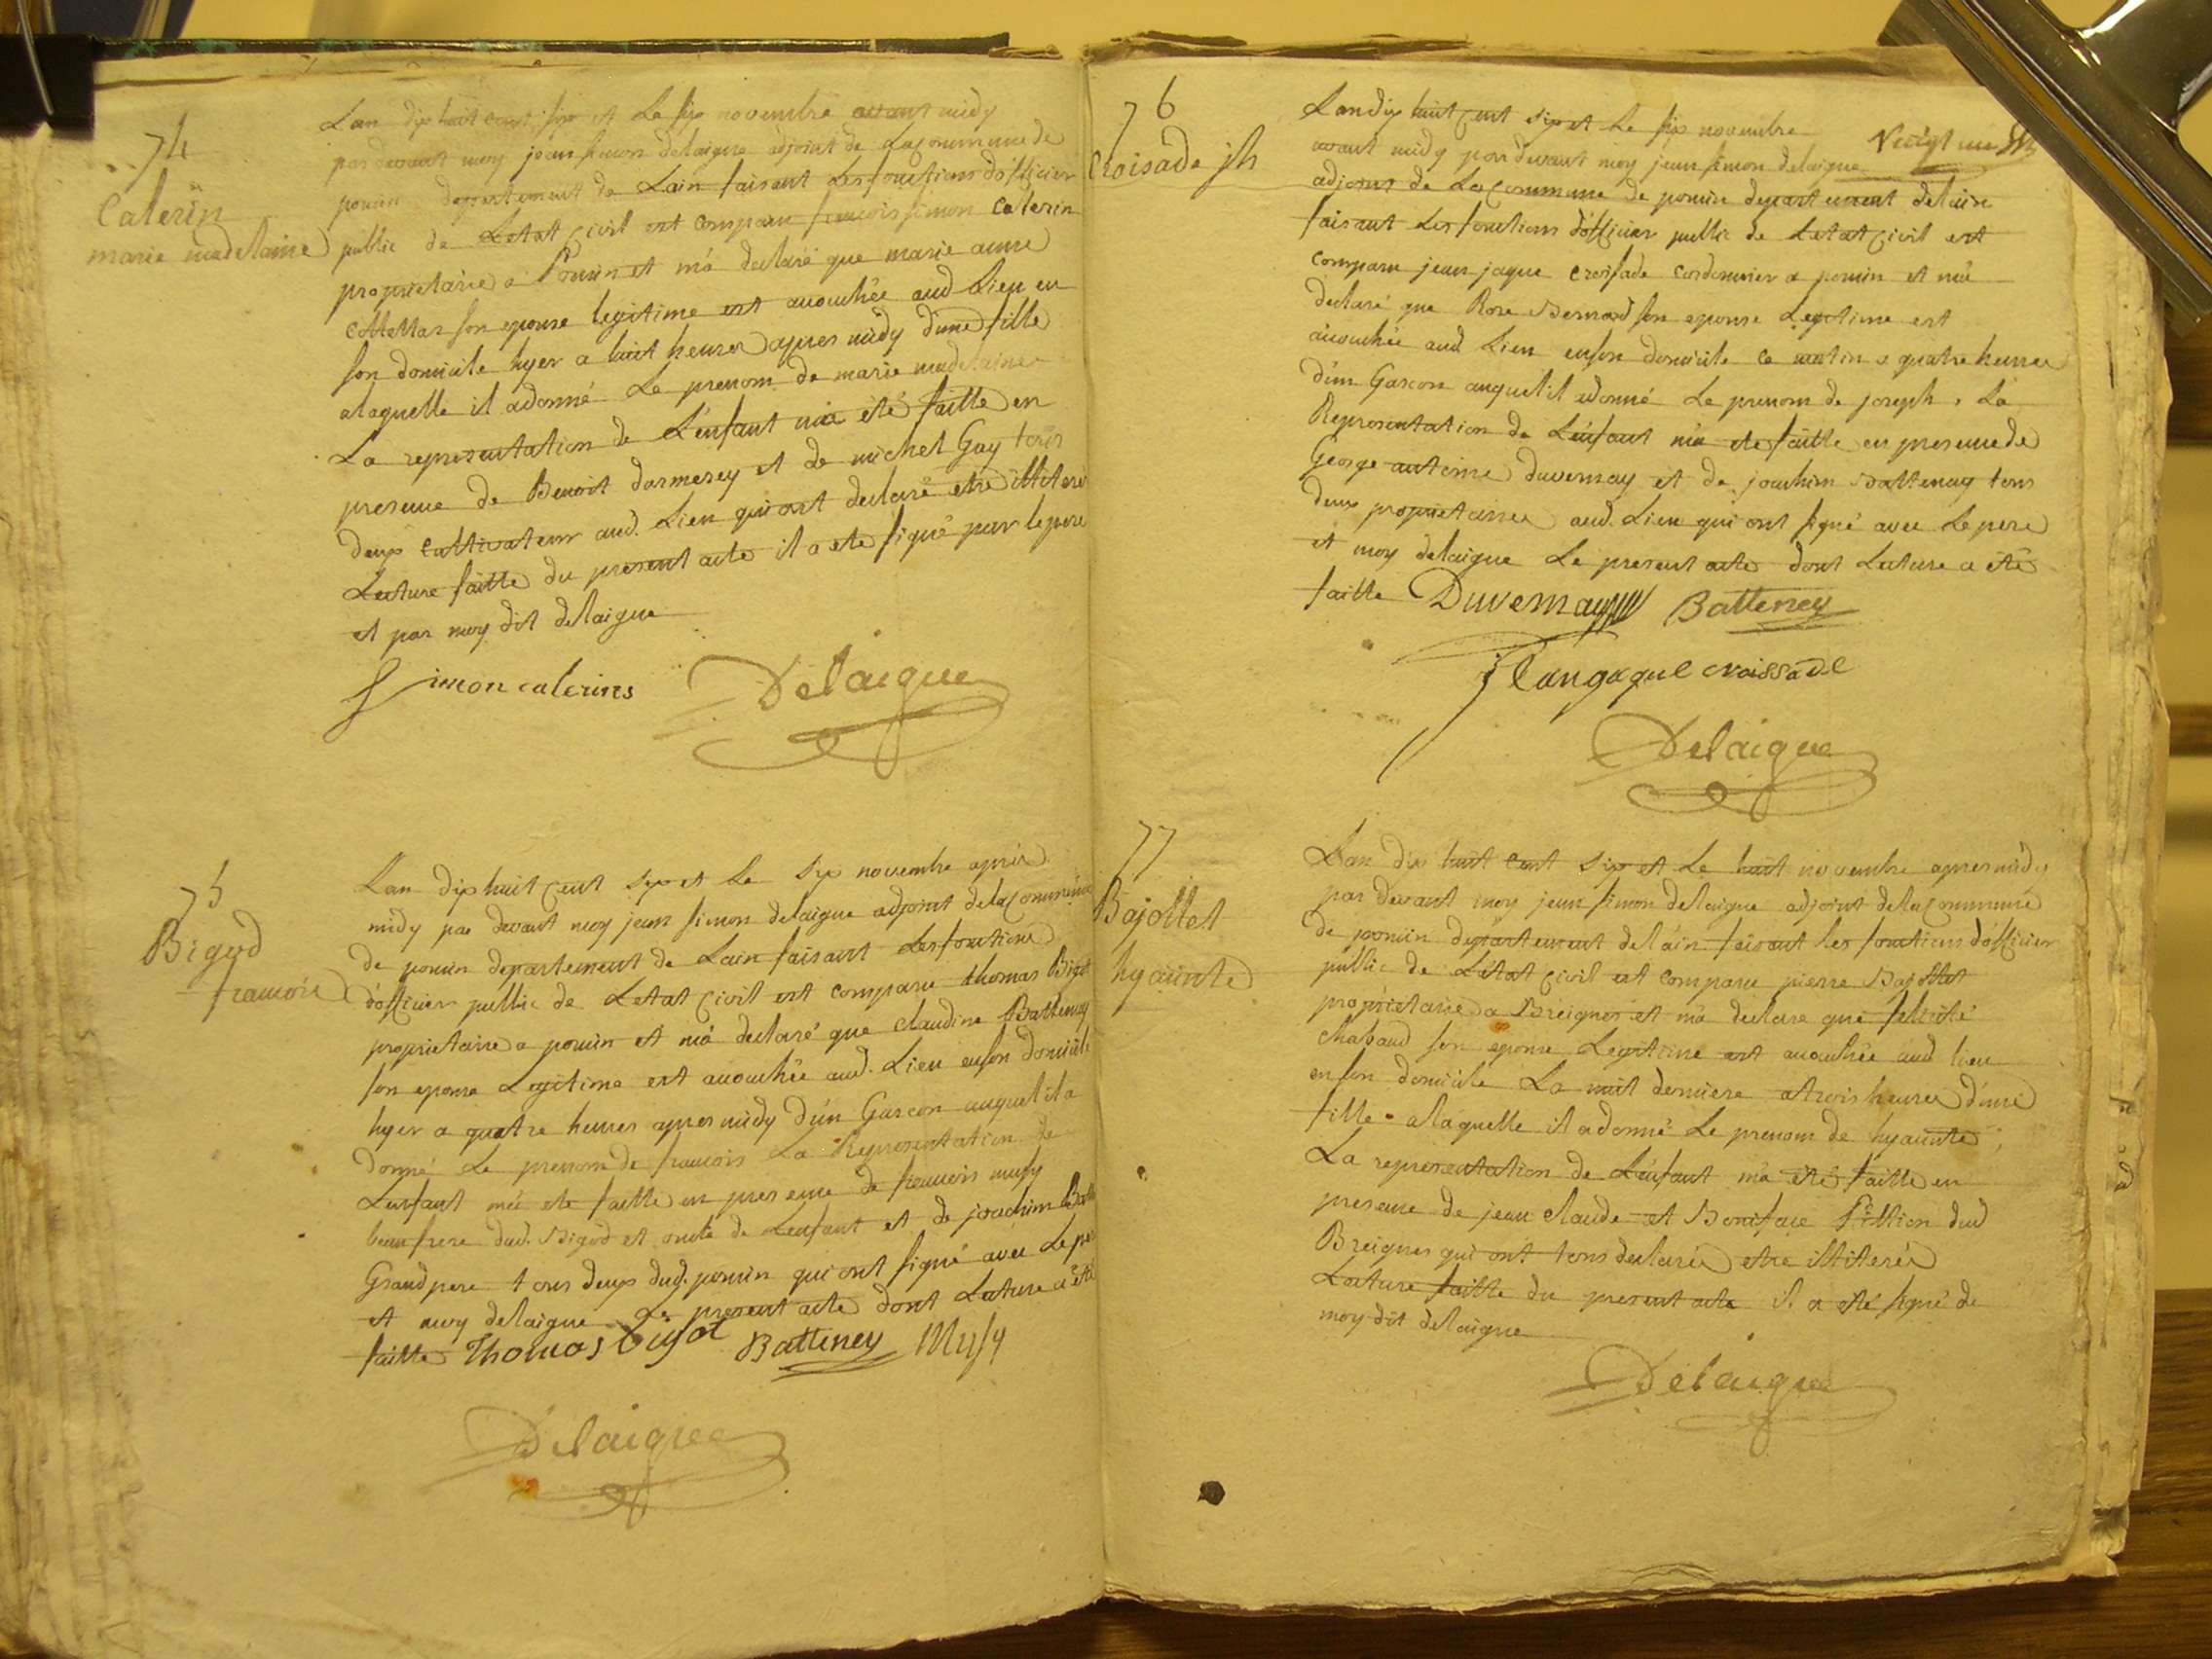 74
Calerin
marie madelaine
Lan dix huit cent six et Le six novembre avant midy
par devant moy jean simon delaigue adjoint de La commune de
poncin departement de Lain faisant Les fonctions d'officier
public de Letat Civil est comparu francois simon Calerin
propriétaire a Poncin et m'a declaré que marie anne
son epouse legitime est accouchée aud Lieu en
son domicile hyer a huit heures apres midy d'une fille
a laquelle il a donné Le prenom de marie madelaine
La representation de L'enfant m'a été faitte en
presence de Benoit darmesey et de michel Guy tous
deux Cultivateur aud. Lieu qui ont declaré etre illiteré
Lecture faitte du present acte il a eté signé par le pere
et par moy dit delaigue
Simon calerins Delaigue
75
Bigod
francois
Lan dix huit Cent six et Le six novembre après
midy par devant moy jean simon delaigue adjoint de la Commune
de poncin departement de Lain faisant Les fonctions
d'officier public de Letat Civil est comparu thomas Bigot
proprietaire a poncin et m'a declaré que claudine Batteney
son epouse Legitime est accouchée aud. Lieu en son domicile
hyer a quatre heures apres midy d'un Garcon auquel il a
donné Le prenom de francois La Representation de
Lenfant m'a eté faitte en presence de francois musy
beau frere dud. Bigod et oncle de Lenfant et de joachim Batt
Grand pere tous deux dud. poncin qui ont signé avec Le pere
et moy delaigue Le present acte dont Lecture a été
faitte Thomas bigot Batteney Musy
Delaigue
76
Croisade jh
Vingt un
Lan dix huit Cent six et Le six novembre
avant midy par devant moy jean simon delaigue
adjoint de La Commune de poncin departement de lain
faisant Les fonctions d'officier public de Letat Civil est
comparu jean jaque Croisade Cordonnier a poncin et m'a
declaré que Rose Bernard son epouse Legitime est
accouchée aud Lieu en son domicile ce matin a quatre heures
d'un Garcon auquel il a donné Le prenom de joseph. La
Representation de L'enfant m'a eté faitte en presence de
George antoine Duvernay et de joachim Batteney tous
deux proprietaires aud. Lieu qui ont signé avec Le pere
et moy delaigue Le present acte dont Lecture a été
faitte Duvernay Batteney
jeangaque croissade
Delaigue
77
Bajollet
hyacinte
Lan dix huit Cent six et Le huit novembre apres midy
par devant moy jean simon delaigue adjoint de la Commune
de poncin departement de lain faisant Les fonctions d'officier
public de Létat Civil est comparu pierre Bajollet
propriétaire a Breignes et m'a declare que felicité
Chabaud son epouse Legitime est accouchée aud lieu
en son domicile La nuit derniere a trois heures d'une
fille a laquelle il a donné Le prenom de hyacinte
La representation de L'enfant m'a été faitte en
presence de jean claude et Boniface Pillion dud
Breignes qui ont tous declarés etre illiterés
Lecture faitte du present acte il a eté signé de
moy dit delaigue
Delaigue